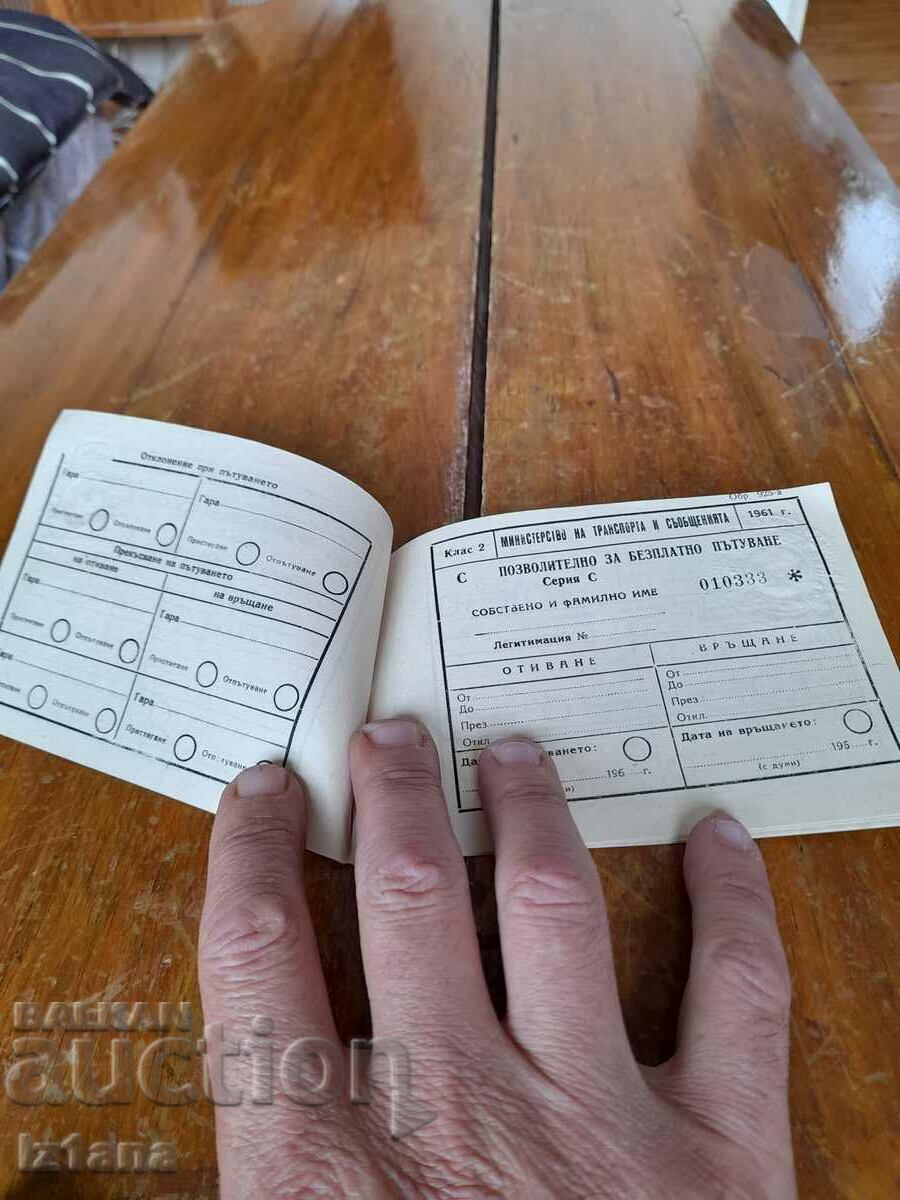 Отклонение при пътуването
Гара
Гара
Пристигане
Отпътуване
Пристигане
Отпътуване
Прекъсване на пътуването
на отиване
на връщане
Гара
Гара
Пристигане
Отпътуване
Пристигане
Отпътуване
Гара
Отпътуване
Пристигане
Отпътуване
Обр. 925-а
Клас 2
МИНИСТЕРСТВО НА ТРАНСПОРТА И СЪОБЩЕНИЯТА
1961 г.
С ПОЗВОЛИТЕЛНО ЗА БЕЗПЛАТНО ПЪТУВАНЕ
Серия С
010333 *
СОБСТВЕНО И ФАМИЛНО ИМЕ
Легитимация №
ОТИВАНЕ
ВРЪЩАНЕ
От
До
През
Откл.
От
До
През
Откл.
196 г.
Дата на връщането:
195 г.
(с думи)
BALKAN
auction
iz1ana